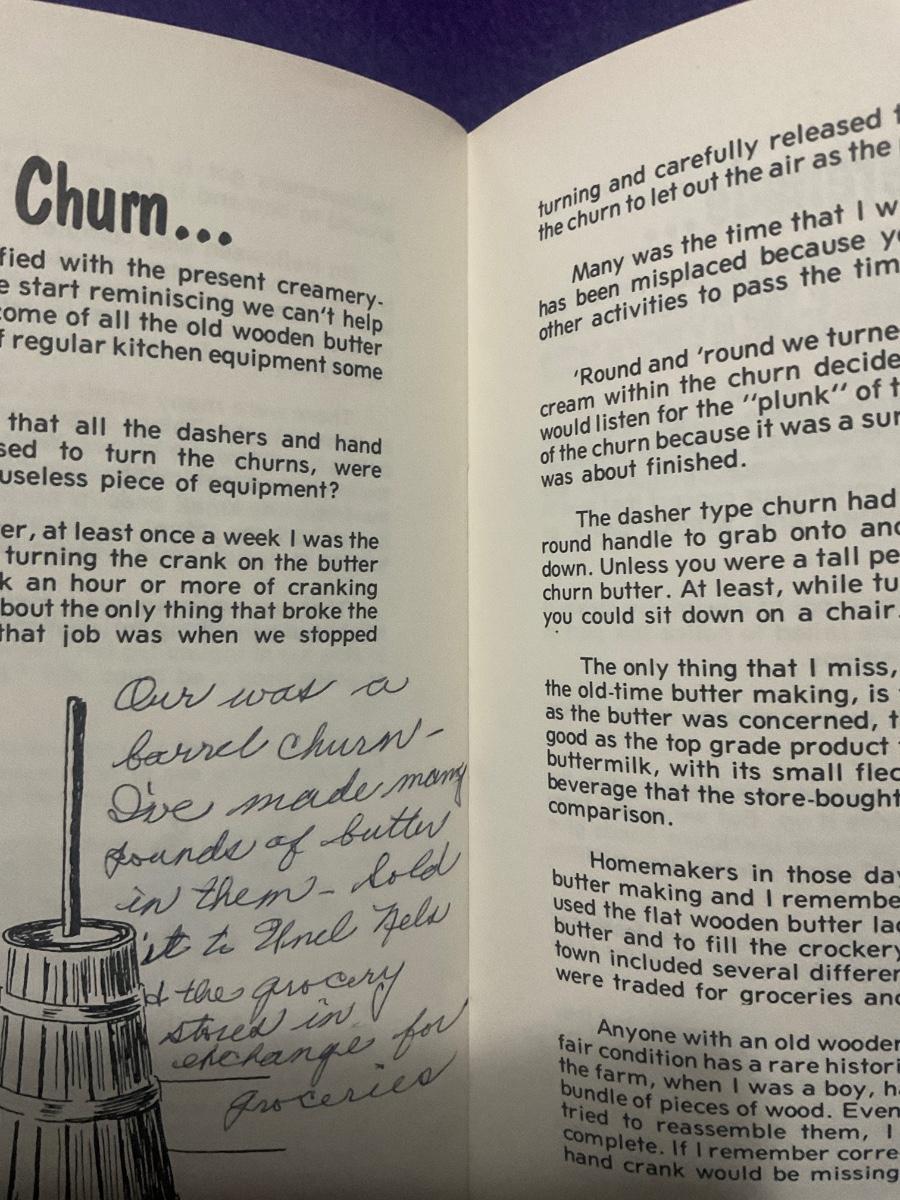 Churn...
fied with the present creamery-
e start reminiscing we can't help
come of all the old wooden butter
f regular kitchen equipment some
that all the dashers and hand
sed to turn the churns, were
useless piece of equipment?
er, at least once a week I was the
turning the crank on the butter
k an hour or more of cranking
bout the only thing that broke the
that job was when we stopped
Our was a
barrel churn -
I've made many
pounds of butter
in them - sold
it to Uncl Nels
the grocery
stores in
exchange for
groceries
turning and carefully released t
the churn to let out the air as the
Many was the time that I w
has been misplaced because yo
other activities to pass the tim
'Round and 'round we turne
cream within the churn decide
would listen for the "plunk" of t
of the churn because it was a sur
was about finished.
The dasher type churn had
round handle to grab onto and
down. Unless you were a tall pe
churn butter. At least, while tu
you could sit down on a chair.
The only thing that I miss,
the old-time butter making, is
as the butter was concerned, t
good as the top grade product
buttermilk, with its small flec
beverage that the store-bought
comparison.
Homemakers in those day
butter making and I remembe
used the flat wooden butter lad
butter and to fill the crockery
town included several differen
were traded for groceries and
Anyone with an old wooden
fair condition has a rare histori
the farm, when I was a boy, ha
bundle of pieces of wood. Even
tried to reassemble them, I
complete. If I remember corre
hand crank would be missing